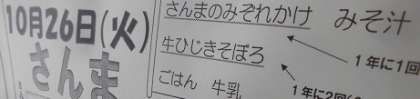 10月26日(火)
さんま
さんまのみぞれかけ みそ汁
牛ひじきそぼろ
1年に1回
ごはん 牛乳
1年に2回